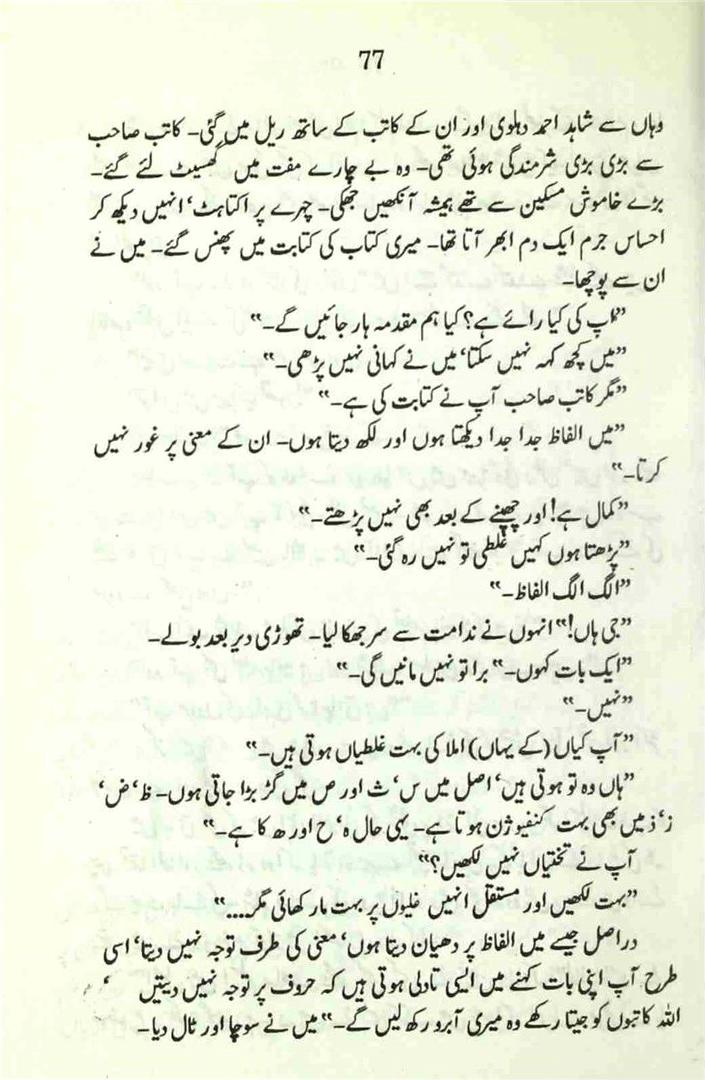 77
وہاں سے شاہد احمد دہلوی اور ان کے کاتب کے ساتھ ریل میں گئی۔ کاتب صاحب
سے بڑی بڑی شرمندگی ہوئی تھی۔ وہ بے چارے مفت میں گھسیٹ لئے گئے۔
بڑے خاموش مسکین سے تھے ہمیشہ آنکھیں جھکی۔ چہرے پر اکتاہٹ، انہیں دیکھ کر
احساس جرم ایک دم ابھر آتا تھا۔ میری کتاب کی کتابت میں پھنس گئے۔ میں نے
ان سے پوچھا۔
”آپ کی کیا رائے ہے؟ کیا ہم مقدمہ ہار جائیں گے۔“
”میں کچھ کہہ نہیں سکتا، میں نے کہانی نہیں پڑھی۔“
”مگر کاتب صاحب آپ نے کتابت کی ہے۔“
”میں الفاظ جدا جدا دیکھتا ہوں اور لکھ دیتا ہوں۔ ان کے معنی پر غور نہیں
کرتا۔“
”کمال ہے! اور چھپنے کے بعد بھی نہیں پڑھتے۔“
”پڑھتا ہوں کہیں غلطی تو نہیں رہ گئی۔“
”الگ الگ الفاظ۔“
”جی ہاں!“ انہوں نے ندامت سے سر جھکا لیا۔ تھوڑی دیر بعد بولے۔
”ایک بات کہوں۔“ برا تو نہیں مانیں گی۔“
”نہیں۔“
”آپ کیاں (کے یہاں) املا کی بہت غلطیاں ہوتی ہیں۔“
”ہاں وہ تو ہوتی ہیں، اصل میں س، ث اور ص میں گڑبڑا جاتی ہوں۔ ظ، ض،
ز، ذ میں بھی بہت کنفیوژن ہوتا ہے۔ یہی حال ہ، ح اور ھ کا ہے۔“
آپ نے تختیاں نہیں لکھیں؟“
”بہت لکھیں اور مستقل انہیں غلیوں پر بہت مار کھائی مگر...“
دراصل جیسے میں الفاظ پر دھیان دیتا ہوں، معنی کی طرف توجہ نہیں دیتا، اسی
طرح آپ اپنی بات کہنے میں ایسی تاولی ہوتی ہیں کہ حروف پر توجہ نہیں دیتیں ،
اللہ کاتبوں کو جیتا رکھے وہ میری آبرو رکھ لیں گے۔“ میں نے سوچا اور ٹال دیا۔